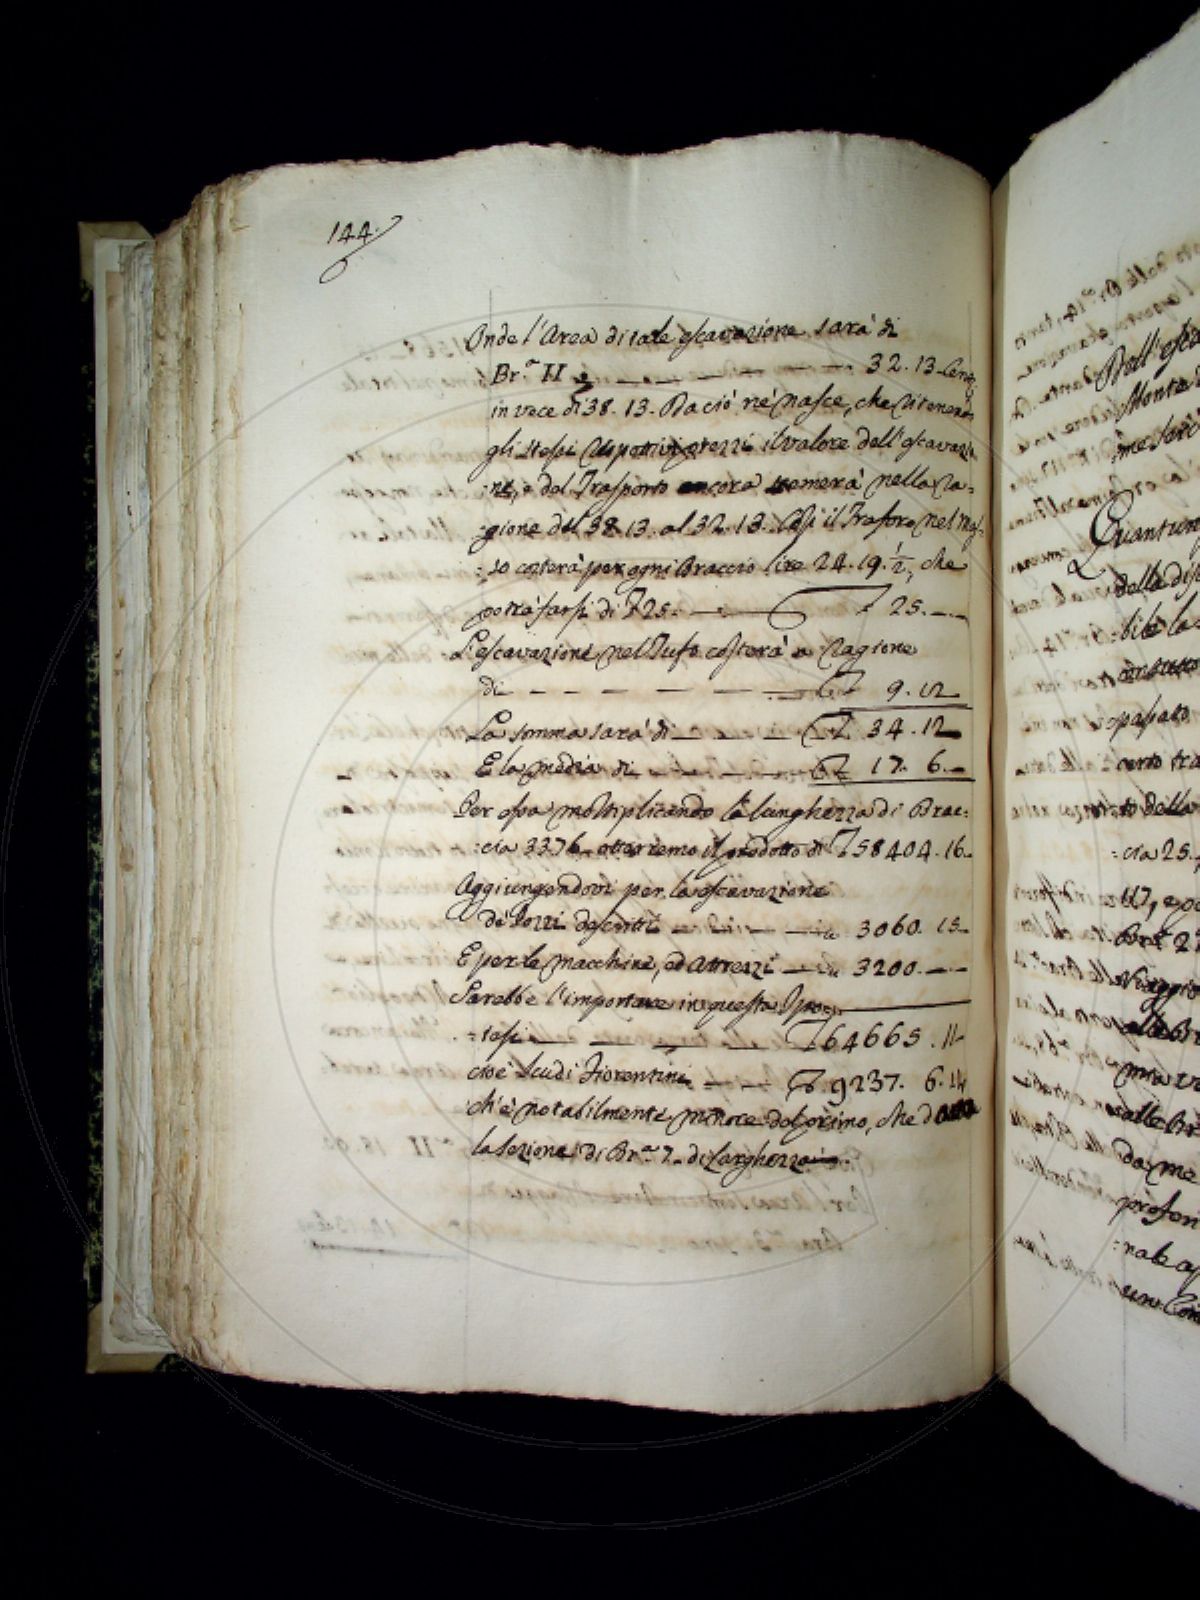 144.
Onde l'Area di tale escavazione sarà di
Br.ª II 32.13 Cent:
in vece di 38.13. Da ciò ne nasce, che ritenendo
gli stessi rispettivi prezzi il valore dell'escavazio
:ne, e del Trasporto ancora scemerà nella ra=
:gione del 38.13. al 32.13. Così il Traforo nel
:so costerà per ogni Braccio lire 24.19.½, che
potrà farsi di £ 25. £ 25.
L'escavazione nel Tufo costerà a ragione
di £ 9.12
La somma sarà di £ 34.12
E la media di £ 17. 6.
Per essa moltiplicando la lunghezza di Brac:
:cia 3376 otterremo il prodotto di £ 58404.16.
Aggiungendovi per la escavazione
de' Pozzi descritti 3060. 15
E per le macchine, ed Attrezzi 3200.
Sarebbe l'importare in questa Ipo=
=tesi £ 64665.11
cioè Scudi Fiorentini 9237. 6.
ch'è notabilmente minore del primo, che
la sezione di Br.ª 7. di larghezza.
Dell'
Monte
:me sarò
Quantun
della dis
:bile la
passato
certo tra
:to della
:cia 25.,
Br.ª
Viaggio
alle Br
alle Br
da me
profon
:nale
un Com